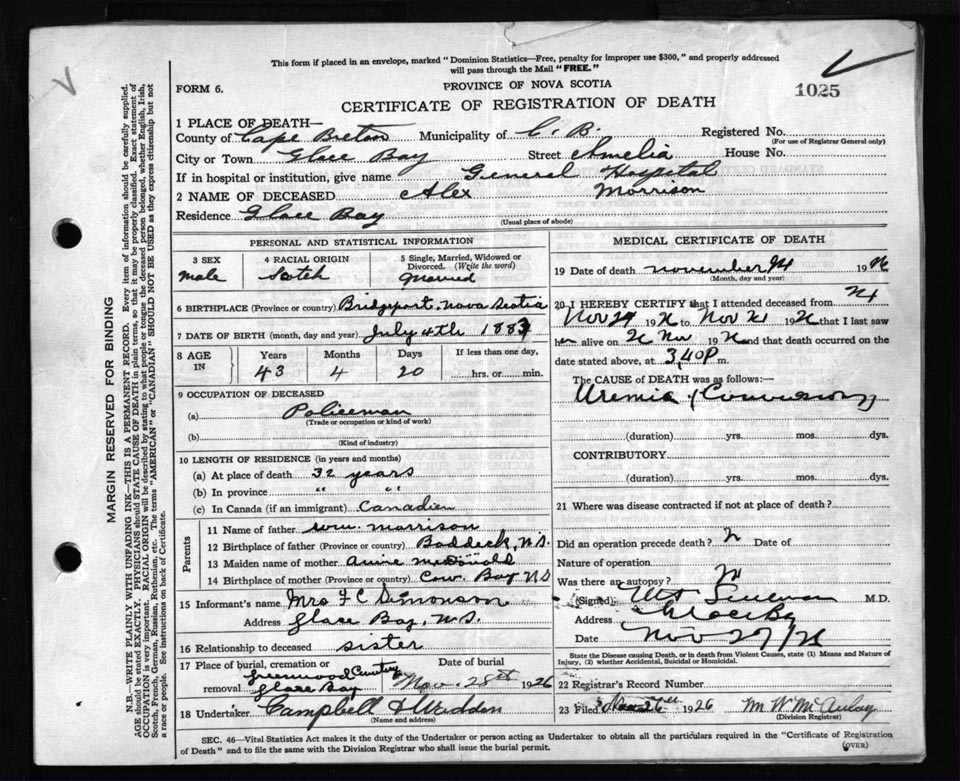 This form if placed in an envelope, marked "Dominion Statistics—Free, penalty for improper use $300," and properly addressed
will pass through the Mail "FREE."
FORM 6.
PROVINCE OF NOVA SCOTIA
1025
CERTIFICATE OF REGISTRATION OF DEATH
1 PLACE OF DEATH—
County of Cape Breton Municipality of C. B. Registered No.
(For use of Registrar General only)
City or Town Glace Bay Street Amelia House No.
If in hospital or institution, give name General Hospital
2 NAME OF DECEASED Alex Morrison
Residence Glace Bay
(Usual place of abode)
PERSONAL AND STATISTICAL INFORMATION
3 SEX
male
4 RACIAL ORIGIN
Scotch
5 Single, Married, Widowed or
Divorced. (Write the word)
Married
6 BIRTHPLACE (Province or country) Bridgeport, Nova Scotia
7 DATE OF BIRTH (month, day and year) July 4th 1883
8 AGE IN
Years Months Days If less than one day,
43 4 20 hrs. or min.
9 OCCUPATION OF DECEASED
(a) Policeman
(Trade or occupation or kind of work)
(b)
(Kind of industry)
10 LENGTH OF RESIDENCE (in years and months)
(a) At place of death 32 years
(b) In province " "
(c) In Canada (if an immigrant) Canadien
Parents
11 Name of father Wm. Morrison
12 Birthplace of father (Province or country) Baddeck, N.S.
13 Maiden name of mother Annie McDonald
14 Birthplace of mother (Province or country) Cow Bay N S
15 Informant's name Mrs F C Simonson
Address Glace Bay, N.S.
16 Relationship to deceased sister
17 Place of burial, cremation or removal Greenwood Cemetery
Glace Bay
Date of burial
Nov. 28th 1926
18 Undertaker Campbell &
(Name and address)
MEDICAL CERTIFICATE OF DEATH
19 Date of death November 24 1926
(Month, day and year)
20 I HEREBY CERTIFY that I attended deceased from
Nov 19 to Nov 19 that I last saw
h alive on Nov 19 and that death occurred on the
date stated above, at 3,40P m.
The CAUSE OF DEATH was as follows:—
Uremia
(duration) yrs. mos. dys.
CONTRIBUTORY
(duration) yrs. mos. dys.
21 Where was disease contracted if not at place of death?
Did an operation precede death? Date of
Nature of operation
Was there an autopsy?
(Signed) M.D.
Address Glace Bay
Date Nov 27/26
State the Disease causing Death, or in death from Violent Causes, state (1) Means and Nature of
Injury, (2) whether Accidental, Suicidal or Homicidal.
22 Registrar's Record Number
23 Filed 1926 M W McAulay
(Division Registrar)
SEC. 46—Vital Statistics Act makes it the duty of the Undertaker or person acting as Undertaker to obtain all the particulars required in the "Certificate of Registration
of Death" and to file the same with the Division Registrar who shall issue the burial permit.
(OVER)
MARGIN RESERVED FOR BINDING
N.B.—WRITE PLAINLY WITH UNFADING INK—THIS IS A PERMANENT RECORD. Every item of information should be carefully supplied.
AGE should be stated EXACTLY. PHYSICIANS should STATE CAUSE OF DEATH in plain terms, so that it may be properly classified. Exact statement of
OCCUPATION is very important. RACIAL ORIGIN will be described by stating to what people or tongue the deceased person belonged, whether English, Irish,
Scotch, French, German, Russian, Ruthenian, etc. The terms "AMERICAN" or "CANADIAN" SHOULD NOT BE USED as they express citizenship but not
a race or people. See instructions on back of Certificate.